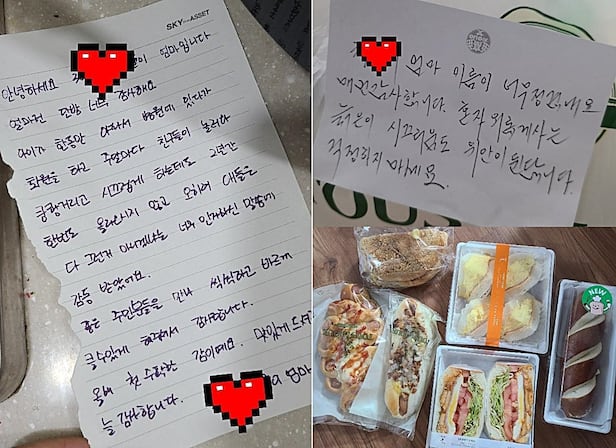 SKY ASSET
안녕하세요 엄마입니다
얼마전 단팥 너무 감사해요
아이가 한동안 아파서 병원에 있다가
퇴원을 하고 주말마다 친구들이 놀러와
쿵쾅거리고 시끄럽게 하는데도 2년간
한번도 올라오시지 않고 오히려 애들은
다 그런거 아니겠냐는 너무 인자하신 말씀에
감동 받았어요.
좋은 주민분들을 만나 씩씩하고 바르게
클수있게 해주셔서 감사합니다.
올해 첫 수확한 감이에요. 맛있게 드세요
늘 감사합니다. 엄마
엄마 이름이 너무 정겹네요
매번 감사합니다. 혼자 외롭게 사는
늙은이 시끄러움도 위안이 된답니다.
걱정하지 마세요.
NEW